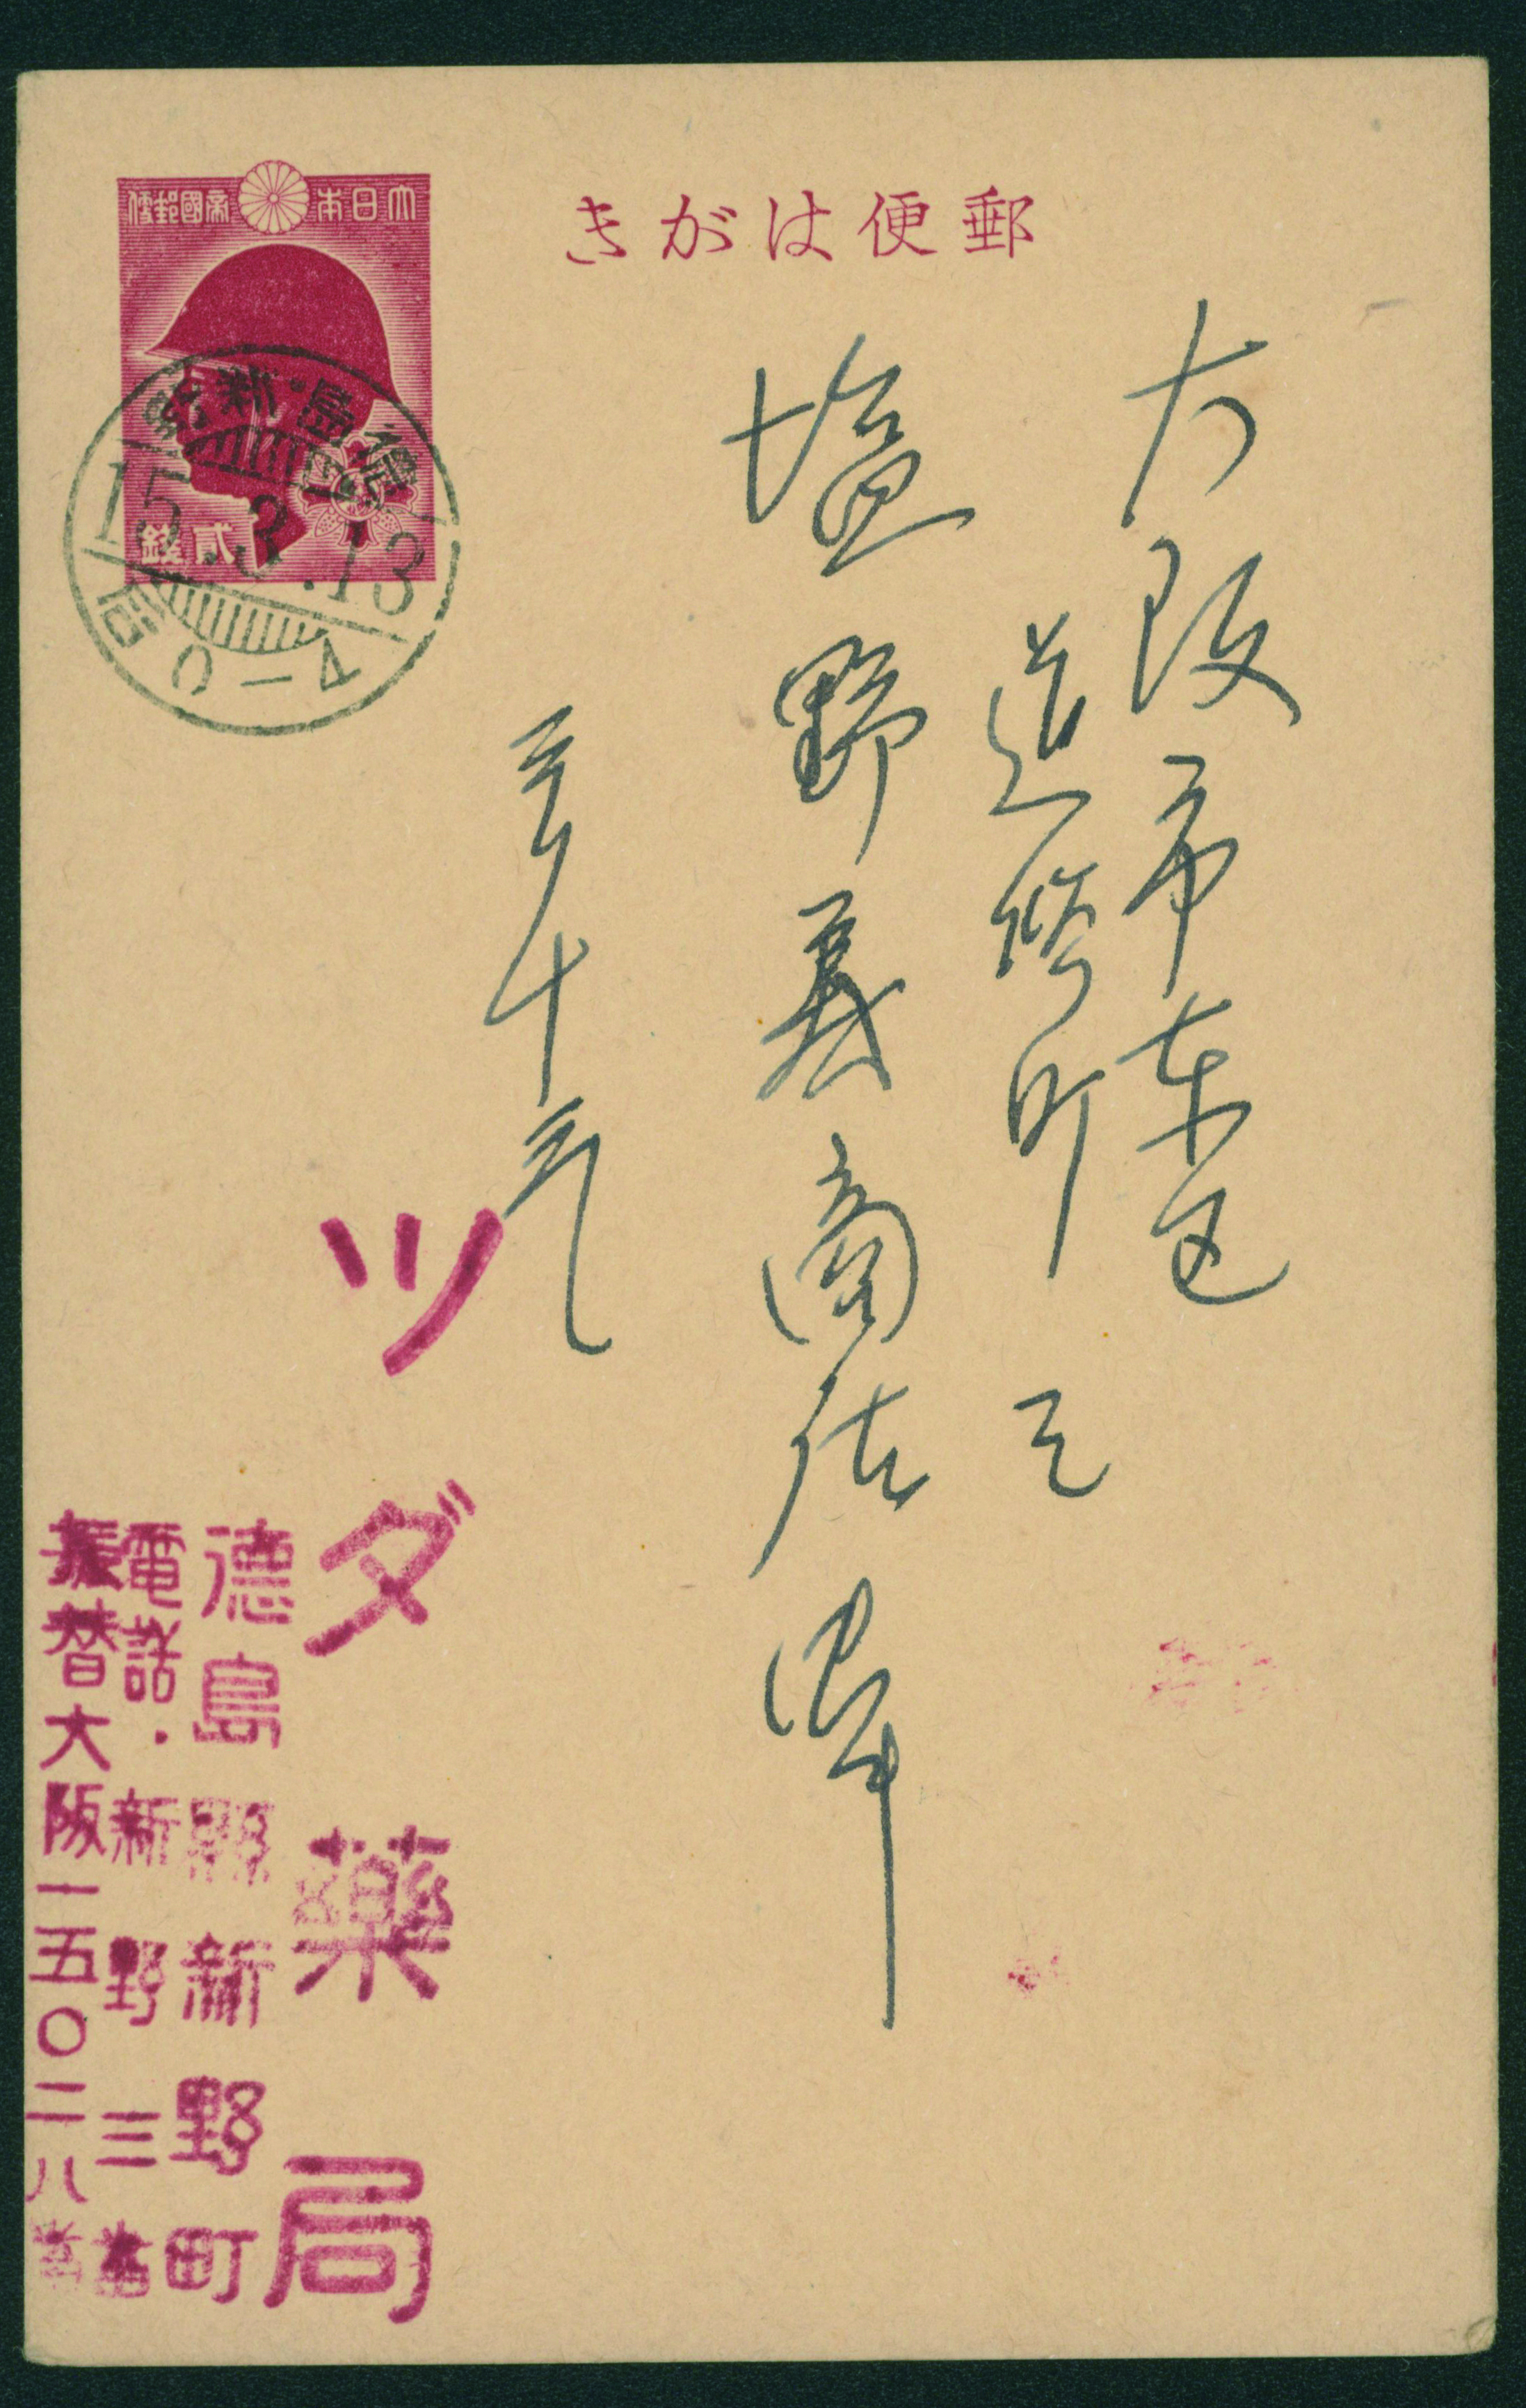 郵便はがき
大日本帝國郵便
貳錢
德島・新野
15.3.13
后0-4
大阪市東区
道修町三
塩野義商店 御中
三月十三日
ツダ薬局
德島縣新野町
電話・新野三番
振替大阪一五〇二八番